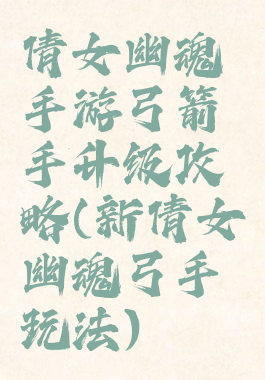 倩女幽魂
手游弓箭
手升级攻
略(新倩女
幽魂弓手
玩法)